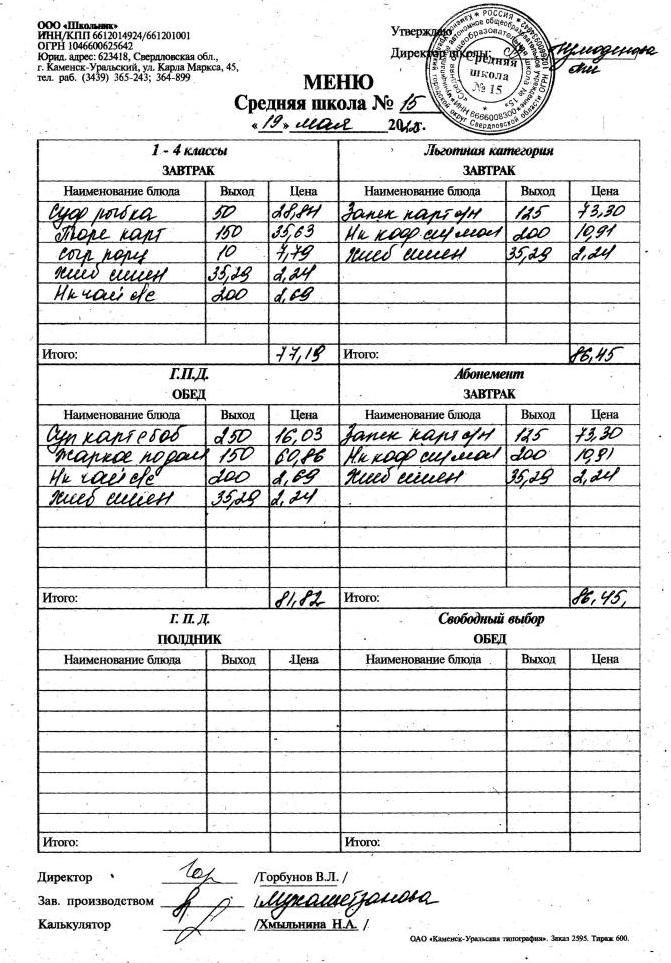 ООО «Школьник»
ИНН/КПП 6612014924/661201001
ОГРН 1046600625642
Юрид. адрес: 623418, Свердловская обл.,
г. Каменск-Уральский, ул. Карла Маркса, 45,
тел. раб. (3439) 365-243; 364-899
Утверждаю
Директор школы:
Средняя
школа
№ 15
МЕНЮ
Средняя школа № 15
«19» мая
1 - 4 классы
ЗАВТРАК
Наименование блюда Выход Цена
Суф рыбка 50 28,84
Пюре карт 150 35,63
сыр порц 10 7,79
Хлеб пшен 35,29 2,24
Нк чай с/с 200 2,69
Итого: 77,19
Льготная категория
ЗАВТРАК
Наименование блюда Выход Цена
Запек карт 125 73,30
Нк коф 200 10,91
Хлеб пшен 35,29 2,24
Итого: 86,45
Г.П.Д.
ОБЕД
Наименование блюда Выход Цена
Суп карт с боб 250 16,03
Жаркое по дом 150 60,86
Нк чай с/с 200 2,69
Хлеб пшен 35,29 2,24
Итого: 81,82
Абонемент
ЗАВТРАК
Наименование блюда Выход Цена
Запек карт 125 73,30
Нк коф 200 10,91
Хлеб пшен 35,29 2,24
Итого: 86,45,
Г. П. Д.
ПОЛДНИК
Наименование блюда Выход Цена
Итого:
Свободный выбор
ОБЕД
Наименование блюда Выход Цена
Итого:
Директор /Горбунов В.Л. /
Зав. производством
Калькулятор /Хмыльнина Н.А. /
ОАО «Каменск-Уральская типография». Заказ 2595. Тираж 600.